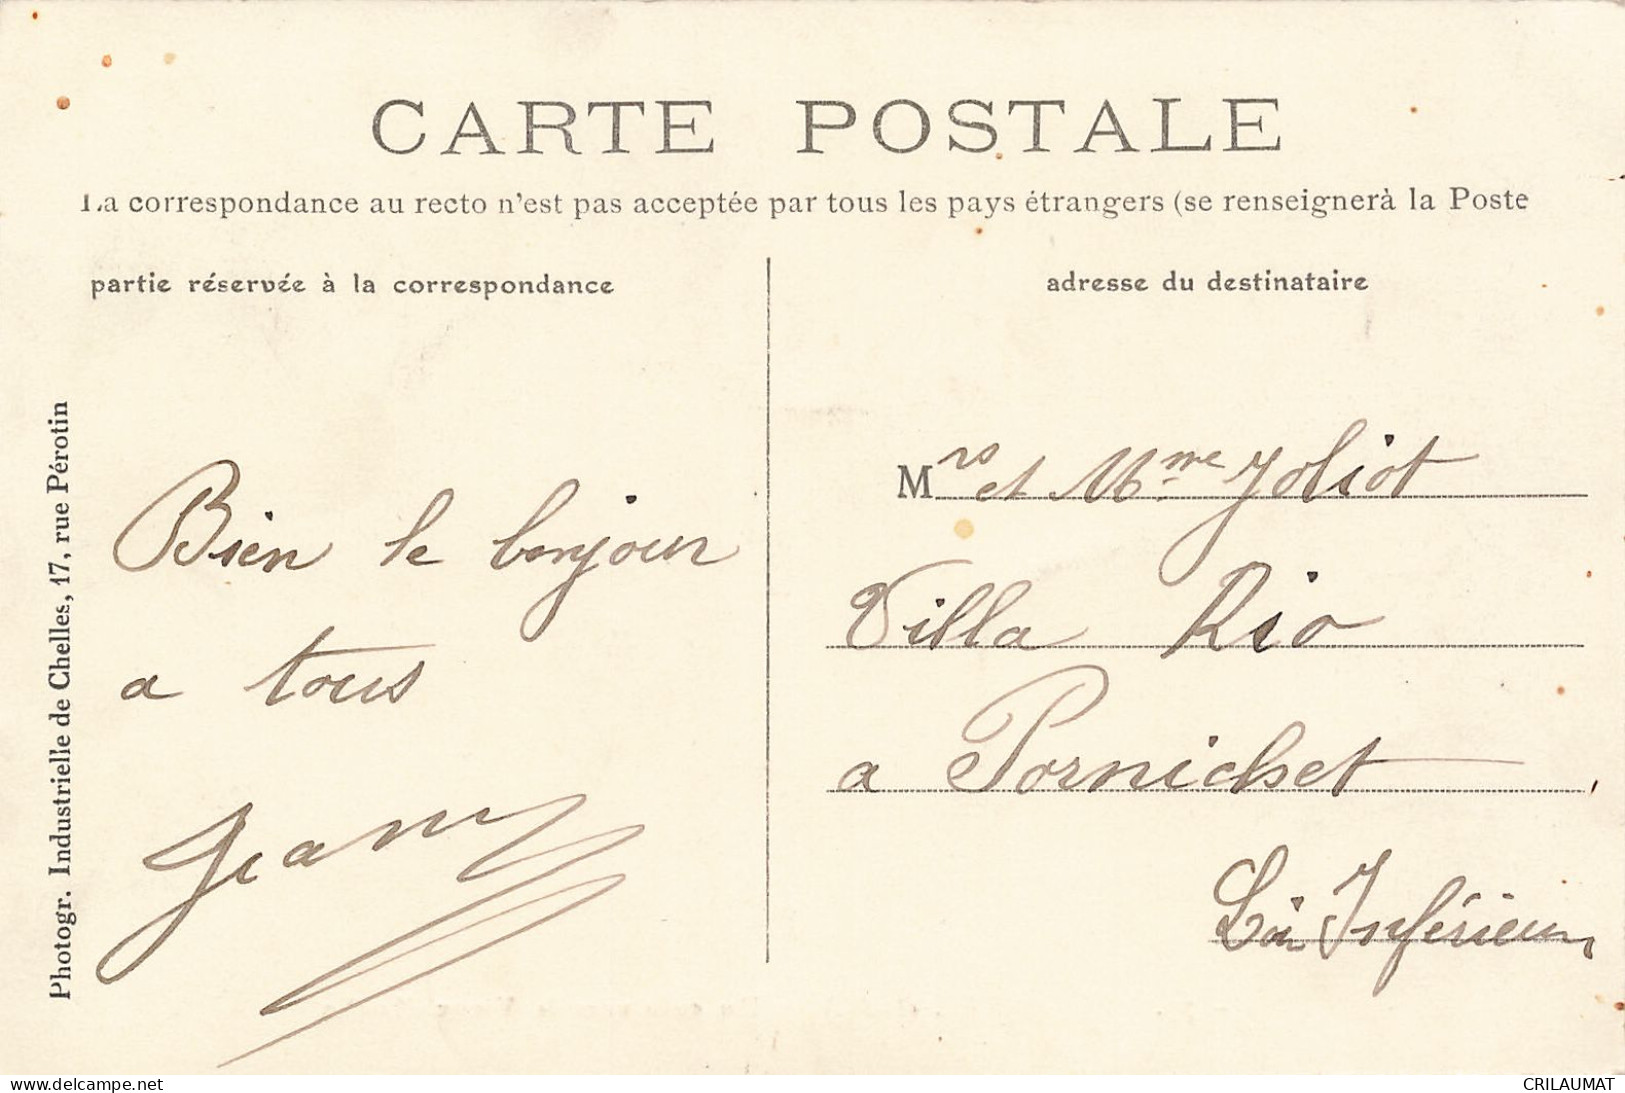 CARTE POSTALE
La correspondance au recto n'est pas acceptée par tous les pays étrangers (se renseignerà la Poste
partie réservée à la correspondance
adresse du destinataire
Photogr. Industrielle de Chelles, 17, rue Pérotin
Bien le bonjour
a tous
Jean
Mrs et Mme Joliot
Villa Rio
a Pornichet
Loi Inférieur
www.delcampe.net
CRILAUMAT